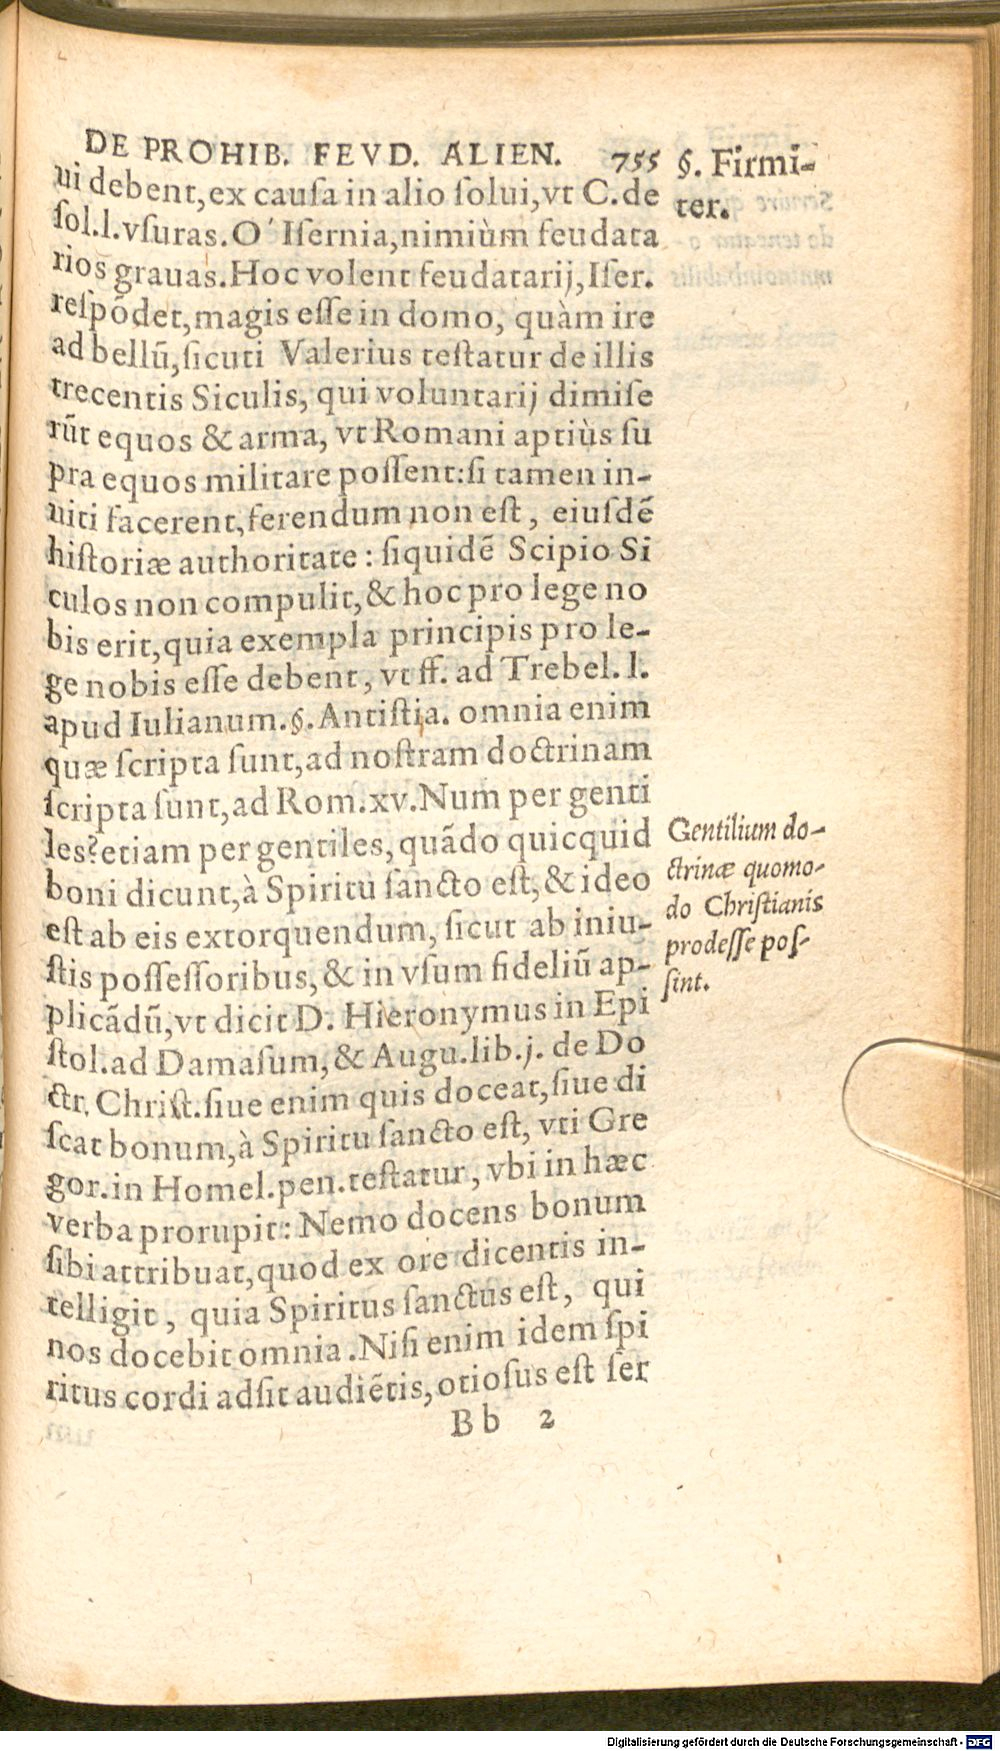 DE PROHIB. FEVD. ALIEN. 755
§. Firmi-
ter.
ui debent, ex causa in alio solui, vt C. de
sol. l. vsuras. O Isernia, nimiùm feudata
rios grauas. Hoc volent feudatarij, Iser.
respõdet, magis esse in domo, quàm ire
ad bellũ, sicuti Valerius testatur de illis
trecentis Siculis, qui voluntarij dimise
rũt equos & arma, vt Romani aptiùs su
pra equos militare possent: si tamen in-
uiti facerent, ferendum non est, eiusdẽ
historiæ authoritate: siquidẽ Scipio Si
culos non compulit, & hoc pro lege no
bis erit, quia exempla principis pro le-
ge nobis esse debent, vt ff. ad Trebel. l.
apud Iulianum. §. Antistia. omnia enim
quæ scripta sunt, ad nostram doctrinam
scripta sunt, ad Rom. xv. Num per genti
les? etiam per gentiles, quãdo quicquid
boni dicunt, à Spiritu sancto est, & ideo
est ab eis extorquendum, sicut ab iniu-
stis possessoribus, & in vsum fideliũ ap-
plicãdũ, vt dicit D. Hieronymus in Epi
stol. ad Damasum, & Augu. lib. j. de Do
ctr. Christ. siue enim quis doceat, siue di
scat bonum, à Spiritu sancto est, vti Gre
gor. in Homel. pen. testatur, vbi in hæc
verba prorupit: Nemo docens bonum
sibi attribuat, quod ex ore dicentis in-
telligit, quia Spiritus sanctus est, qui
nos docebit omnia. Nisi enim idem spi
ritus cordi adsit audiẽtis, otiosus est ser
Gentilium do-
ctrinæ quomo-
do Christianis
prodesse pos-
sint.
Bb 2
Digitalisierung gefördert durch die Deutsche Forschungsgemeinschaft - DFG